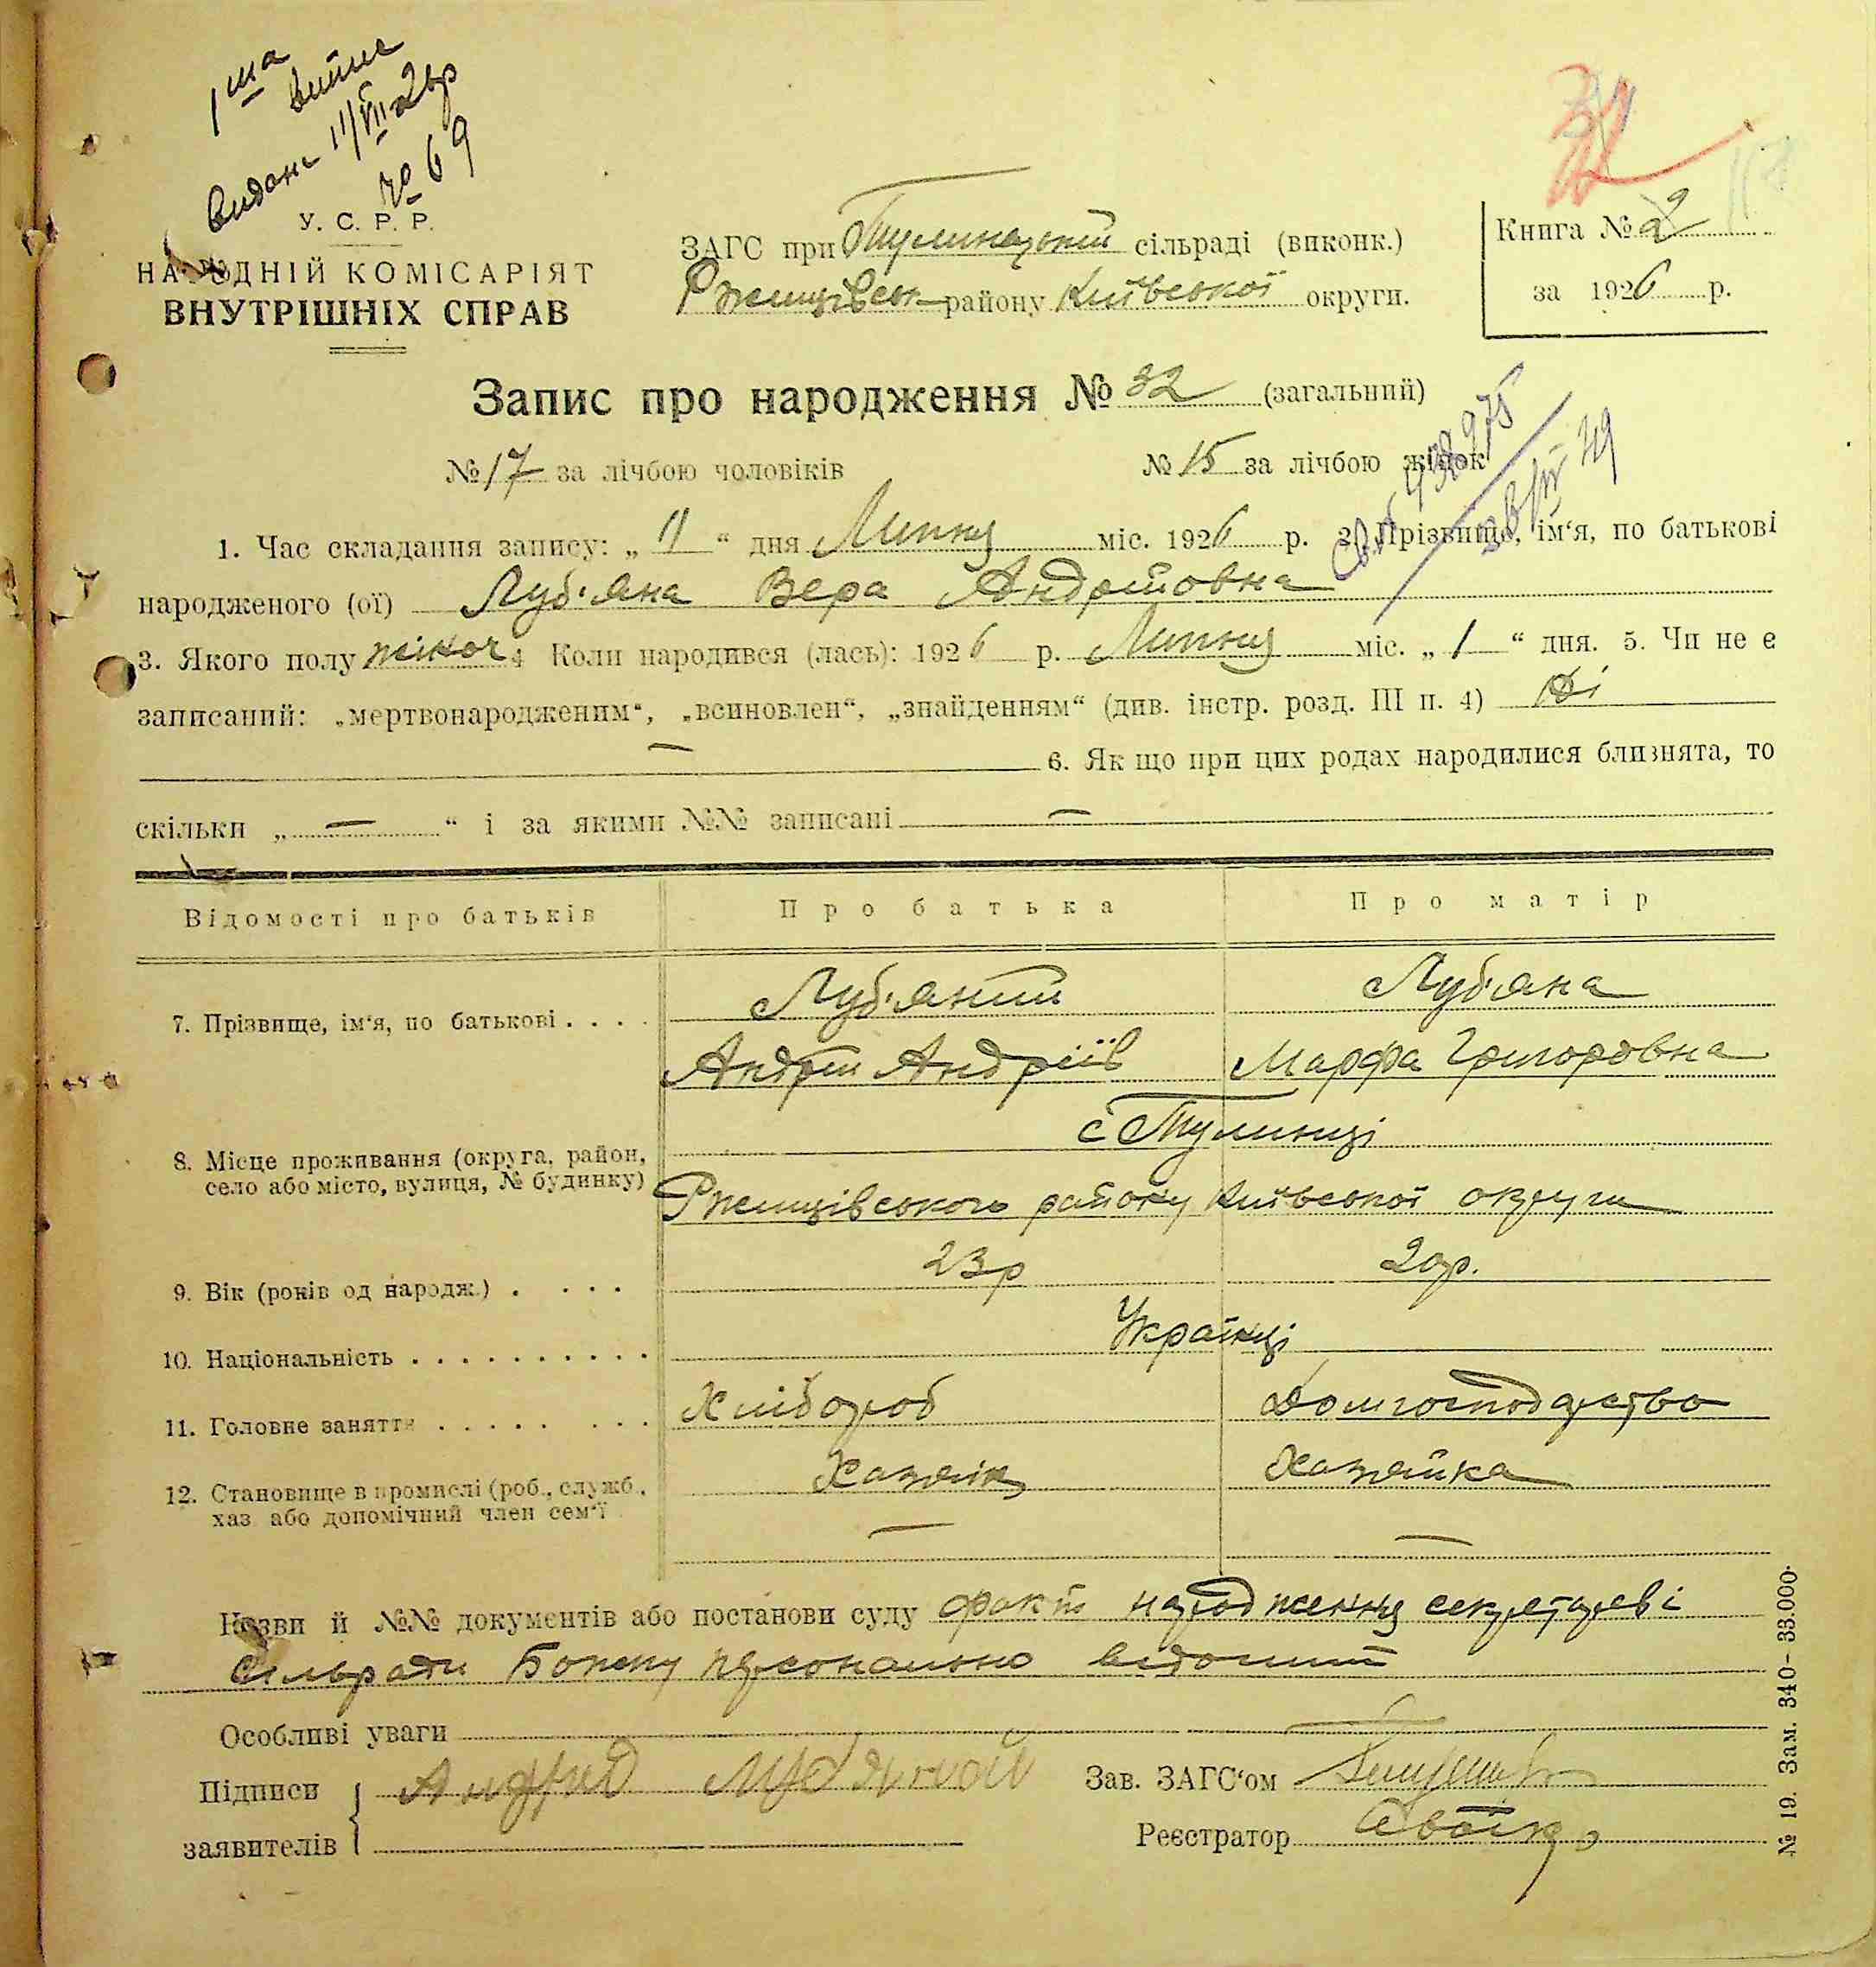 1ша
витяг
видана 11/VII 26р
№ 69
32
У. С. Р. Р.
НАРОДНІЙ КОМІСАРІЯТ
ВНУТРІШНІХ СПРАВ
ЗАГС при Тулинецькій сільраді (виконк.)
Ржищівськ району Київської округи.
Книга № 2
за 1926 р.
Запис про народження № 32 (загальний)
№ 17 за лічбою чоловіків № 15 за лічбою жінок
1. Час складання запису: „ 11 “ дня Липня міс. 1926 р. 2. Прізвище, ім‘я, по батькові
народженого (ої) Луб'яна Вера Андрійовна
3. Якого полу жіноч 4 Коли народився (лась): 1926 р. Липня міс. „ 1 “ дня. 5. Чи не є
записаний: „мертвонародженим“, „всиновлен“, „знайденням“ (див. інстр. розд. III п. 4) Ні
— 6. Як що при цих родах народилися близнята, то
скільки „ — “ і за якими №№ записані —
Відомості про батьків Про батька Про матір
7. Прізвище, ім‘я, по батькові . . . . Луб'яний Луб'яна
Андрій Андріїв Марфа Григоровна
с Тулинці
8. Місце проживання (округа, район,
село або місто, вулиця, № будинку)
Ржищівського району Київської округи
9. Вік (років од народж.) . . . . 23р 20р.
10. Національність . . . . . . . . . . Українці
11. Головне заняття . . . . . . . . Хлібороб Домгосподарство
12. Становище в промислі (роб., служб.,
хаз. або допомічний член сем‘ї Хазяін Хазяйка
— —
Назви й №№ документів або постанови суду факт народження секретареві
сільради персонально відомий
Особливі уваги —
Підписи
заявителів Андрий Лубяной
Зав. ЗАГС‘ом
Реєстратор
№ 19. Зам. 340–33.000.